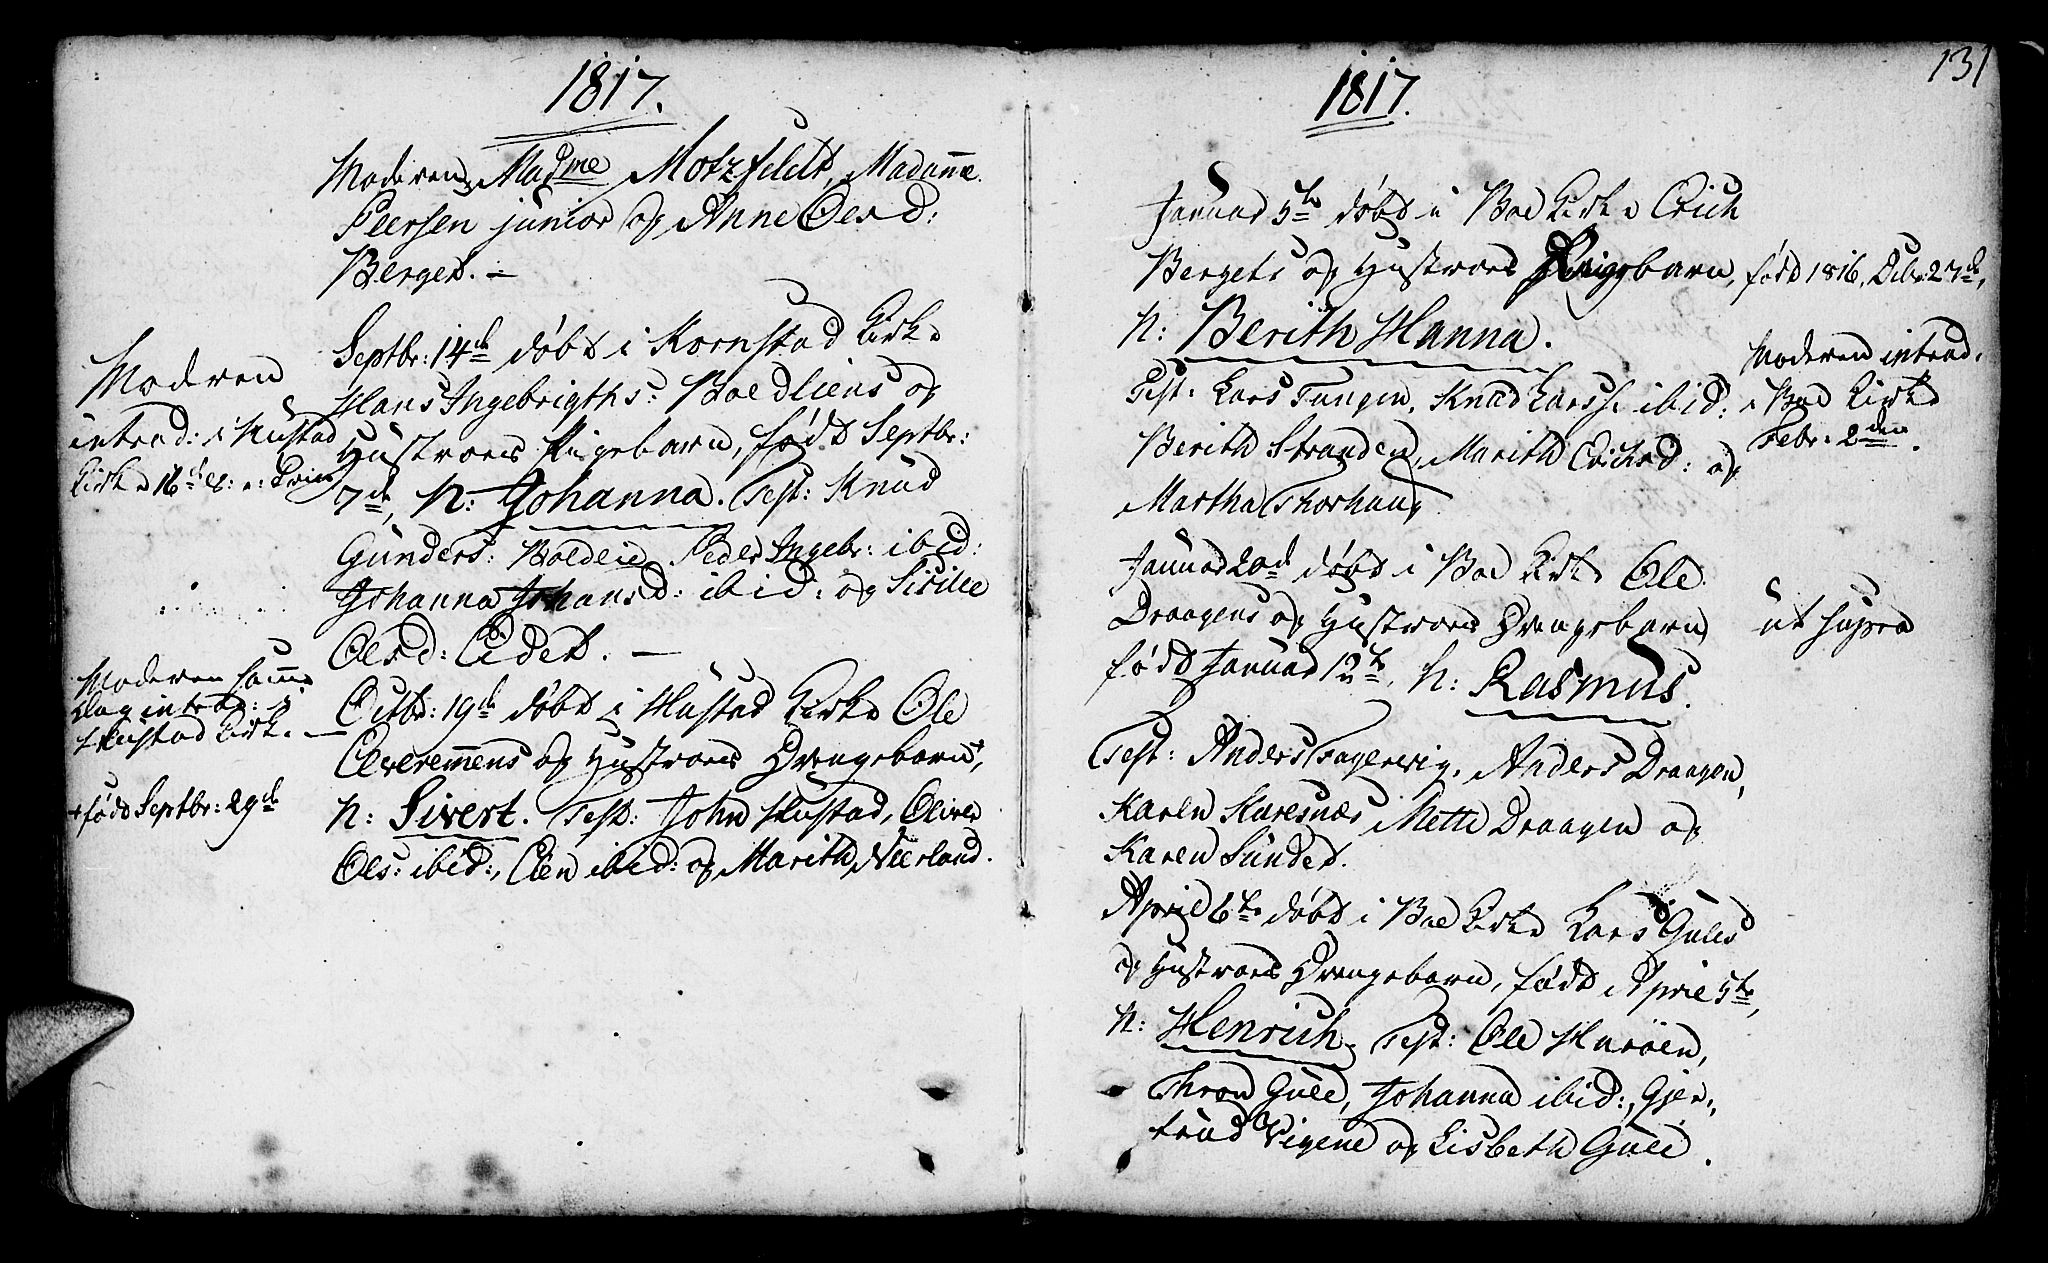 1817.
Moderen, Mad<sup>me</sup> Motzfeldt, Madame
Peersen junior og Anne Olesd:
Berget. —
Septbr: 14de døbt i Kornstad Kirke
Hans Ingebrigths: Boedliens og
Hustroes Pigebarn, født Septbr:
7de, N: Johanna. Test: Knud
Gunders: Peder Ingebr: ibid:
Johanna Johansd: ibid: og Sicilie
Olesd: Eidet. —
Octbr: 19de døbt i Hustad Kirke Ole
og Hustroes Drengebarn,+
N: Sivert. Test: John Hustad, Oliver
Ols: ibid:, Elen ibid: og Marith Nerland.
Modren
introd: i Hustad
Kirke 16de
Moderen samme
Dag introd: i
Hustad Kirke. —
+ født Septbr: 29de
131
1817.
Januar 5te døbt i Boe Kirke Erich
Bergets og Hustroes Pigebarn, født 1816, Decbr: 27de,
N: Berith Hanna.
Test: Lars Tungen, Knud Larss: ibid:
Berith Stranden, Marith Erichsd: og
Martha Thorhaug
Moderen introd.
i Boe Kirke
Febr: 2den.
Januar 20de døbt i Boe Kirke Ole
Draagens og Hustroes Drengebarn
født Januar 12te, N: Rasmus.
ut supra
Test: Anders Fagervig, Anders Draagen,
Karen Haresnæs, Mette Draagen og
Karen Sundet.
April 6te døbt i Boe Kirke Lars Gules
og Hustroes Drengebarn, født April 5te,
N: Henrich. Test: Ole Harøen,
Thron Gule, Johanna ibid:, Gjer-
trud Vigene og Lisbeth Gule.